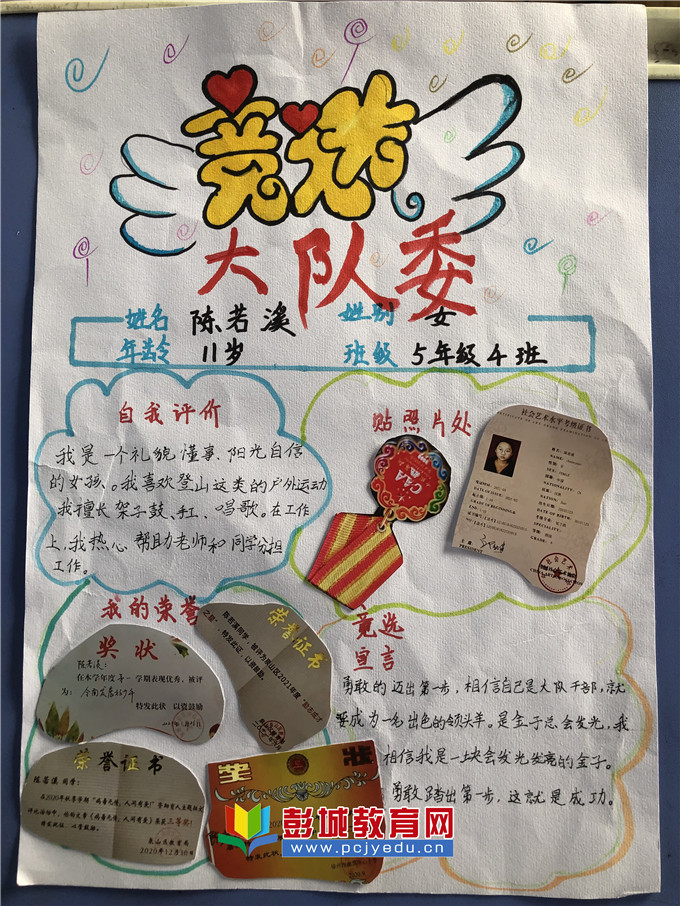 竞选
大队委
姓名 陈若溪 性别 女
年龄 11岁 班级 5年级4班
自我评价
我是一个礼貌懂事、阳光自信
的女孩。我喜欢登山这类的户外运动
我擅长架子鼓、手工、唱歌。在工作
上,我热心帮助老师和同学分担
工作。
贴照片处
社会艺术水平考级证书
CAA
我的荣誉
奖状
陈若溪:
在本学年度第一学期表现优秀,被评
为:全面发展好少年
特发此状 以资鼓励
荣誉证书
陈若溪同学,被评为泉山区2021年度
特发此证,以资鼓励。
荣誉证书
陈若溪 同学:
三等奖
特发此证,以资鼓励。
泉山区教育局
2020年12月30日
奖状
特发此状
竞选
宣言
勇敢的迈出第一步,相信自己是大队干部,就
要成为一名出色的领头羊。是金子总会发光,我
相信我是一块会发光发亮的金子。
勇敢踏出第一步,这就是成功。
彭城教育网
www.pcjyedu.cn